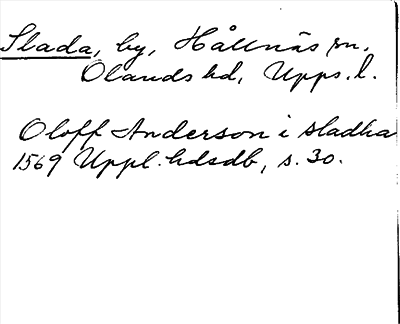 Slada, by, Hållnäs sn,
Olands hd, Upps. l.
Oloff Anderson i sladha
1569 Uppl. hdsdb, s. 30.